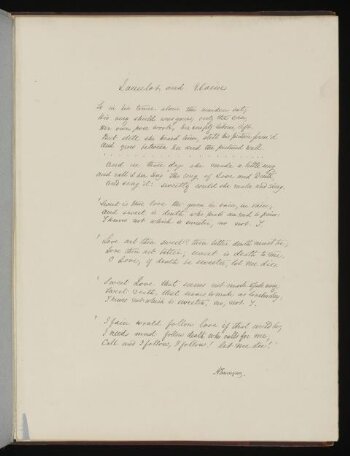 Lancelot and Elaine
So in her tower alone the maiden sat;
His very shield was gone; only the case,
Her own poor work, her empty labour, left.
But still she heard him, still his picture form'd
And grew between her and the pictured wall.
. . . . . . . . . . . . . . . . . . . .
And in those days she made a little song
and call'd her song The Song of Love and Death,
And sang it: sweetly could she make and sing.
'Sweet is true love tho' given in vain, in vain;
And sweet is death who puts an end to pain:
I know not which is sweeter, no, not I.
'Love art thou sweet? then bitter death must be;
Love thou art bitter, sweet is death to me.
O Love, if death be sweeter, let me die.
'Sweet Love that seems not made to fade away,
Sweet Death, that seems to make us loveless clay,
I know not which is sweeter, no, not I.
'I fain would follow love if that could be,
I needs must follow death, who calls for me,
Call and I follow, I follow! let me die!'
ATennyson